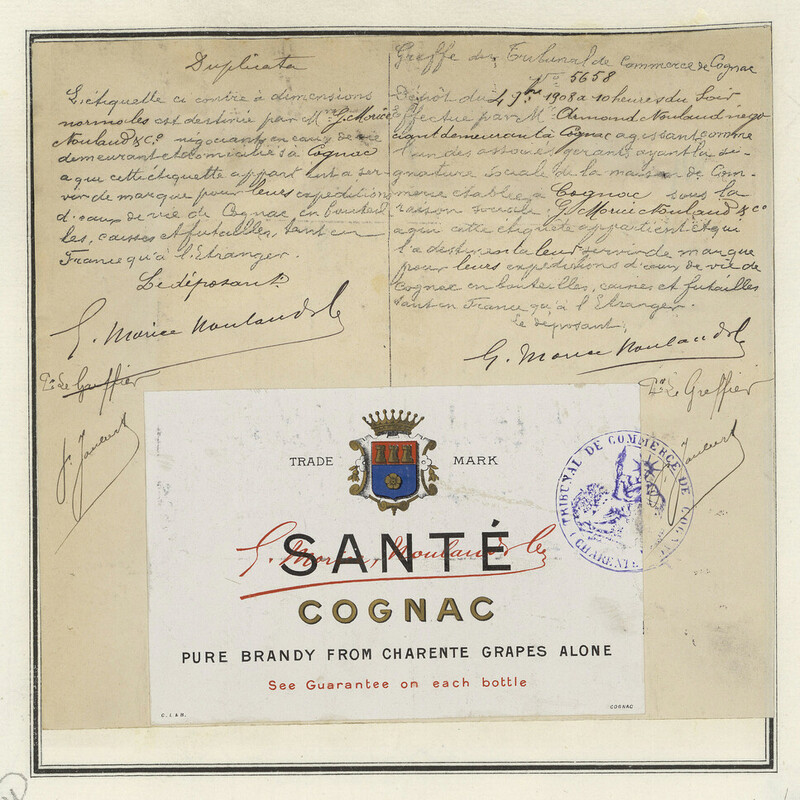 Duplicata
L'étiquette ci contre à dimensions
normales est destinée par Mrs G. Morice
Noulaud & Co négociants en eaux de vie
demeurant et domiciliés à Cognac
à qui cette étiquette appartient à ser-
vir de marque pour leurs expéditions
d'eaux de vie de Cognac en bouteil
les, caisses et futailles, tant en
France qu'à l'Etranger.
Le déposant
G. Morice Noulaud & Co
Le Greffier
Greffe du Tribunal de Commerce de Cognac
No 5658
Dépôt du 4 9bre 1908 à 10 heures du Soir
Effectué par Mr Armond Noulaud négo
ciant demeurant à Cognac agissant comme
l'un des associés gérants ayant la si-
gnature sociale de la maison de Com-
merce établie à Cognac sous la
raison sociale G. Morice Noulaud & Co
à qui cette étiquette appartient et qui
l'a destine à leur servir de marque
pour leurs expéditions d'eaux de vie de
Cognac en bouteilles, caisses et futailles
tant en France qu'à l'Etranger.
le déposant,
G. Morice Noulaud & Co
Le Greffier
TRADE MARK
TRIBUNAL DE COMMERCE DE COGNAC
(CHARENTE)
G. Morice, Noulaud & Co
SANTÉ
COGNAC
PURE BRANDY FROM CHARENTE GRAPES ALONE
See Guarantee on each bottle
C. I. & M.
COGNAC